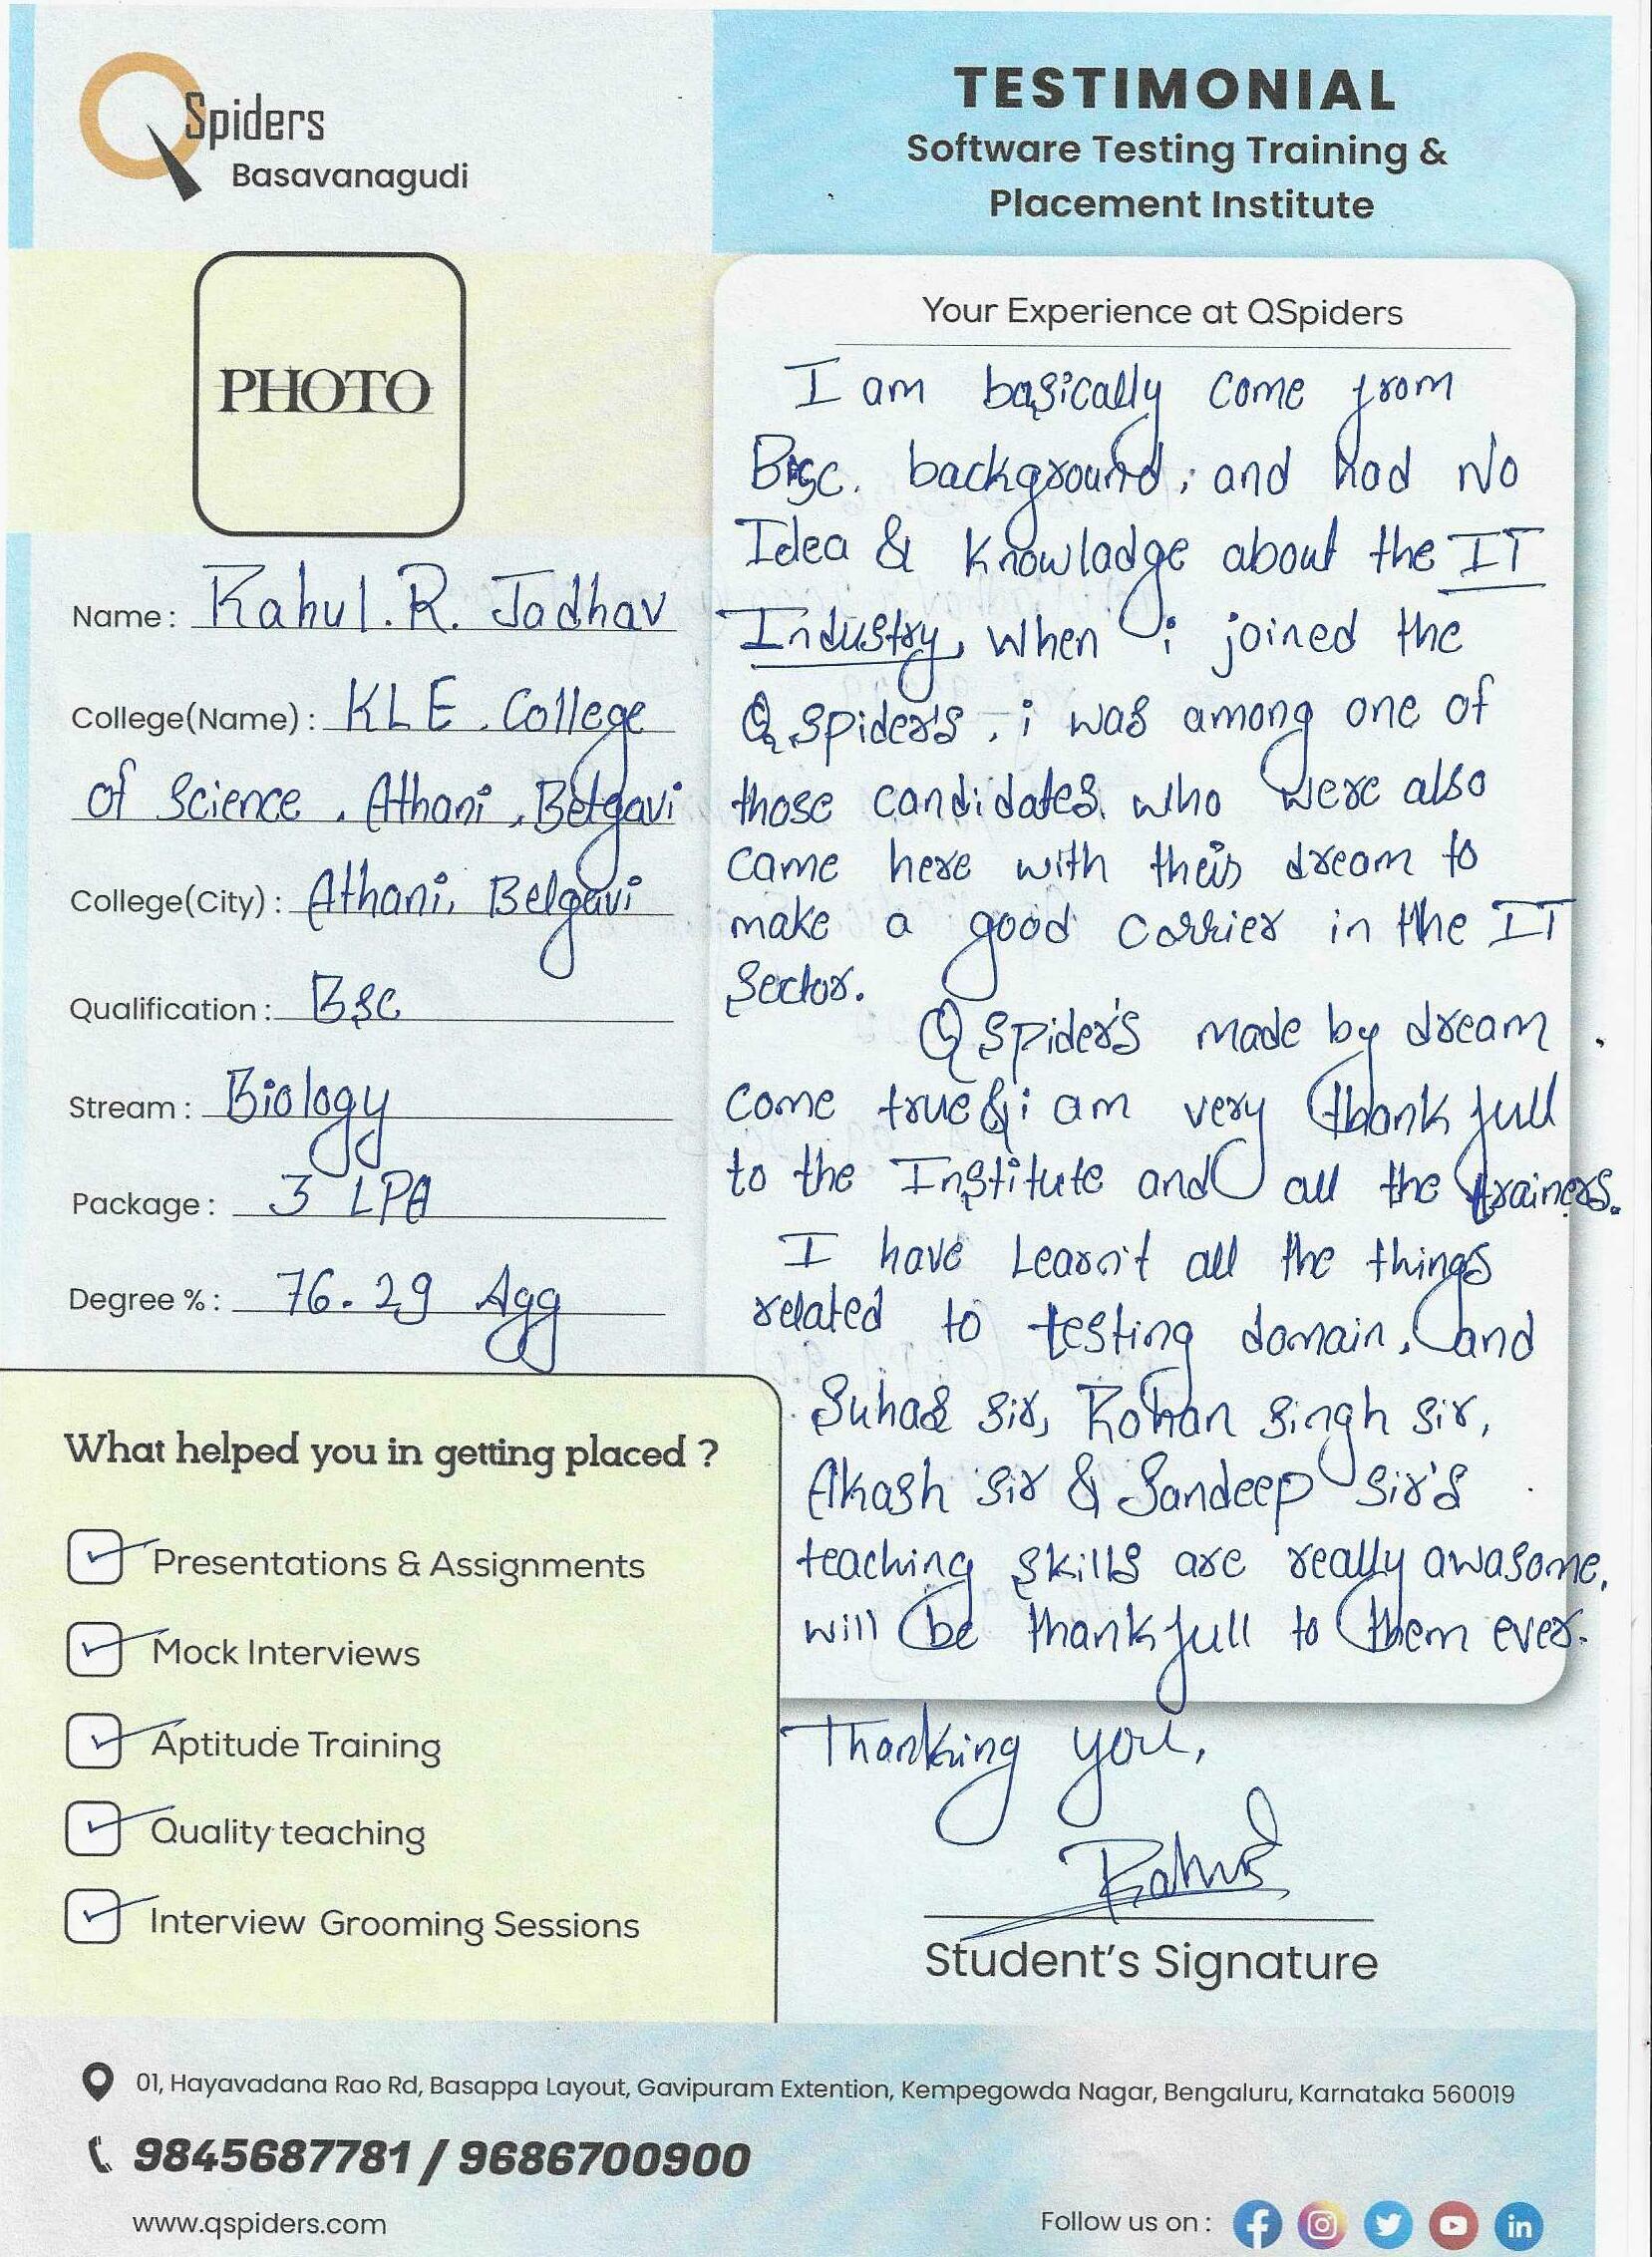 QSpiders
Basavanagudi
TESTIMONIAL
Software Testing Training &
Placement Institute
PHOTO
Name : Rahul. R. Jadhav
College(Name) : KLE. College
of Science, Athani, Belgavi
College(City) : Athani, Belgavi
Qualification : BSC
Stream : Biology
Package : 3 LPA
Degree % : 76.29 Agg
What helped you in getting placed ?
Presentations & Assignments
Mock Interviews
Aptitude Training
Quality teaching
Interview Grooming Sessions
Your Experience at QSpiders
I am basically come from
Bsc. background, and had No
Idea & Knowladge about the IT
Industry, when i joined the
Q spider's, i was among one of
those candidates. who were also
came here with their dream to
make a good carrier in the IT
Sector.
Q spider's made by dream
come true & i am very thankfull
to the Institute and all the trainers.
I have Learn't all the things
related to testing domain, and
Suhas sir, Rohan Singh sir,
Akash sir & Sandeep sir's
teaching skills are really awasome,
will be thankfull to them ever.
Thanking you,
Rahul
Student's Signature
01, Hayavadana Rao Rd, Basappa Layout, Gavipuram Extention, Kempegowda Nagar, Bengaluru, Karnataka 560019
9845687781 / 9686700900
www.qspiders.com
Follow us on :